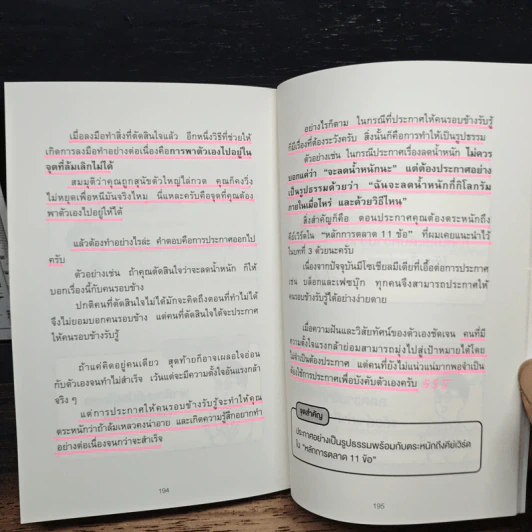 เมื่อลงมือทำสิ่งที่ตัดสินใจแล้ว อีกหนึ่งวิธีที่ช่วยให้
เกิดการลงมือทำอย่างต่อเนื่องคือการพาตัวเองไปอยู่ใน
จุดที่ล้มเลิกไม่ได้
สมมุติว่าคุณถูกสุนัขตัวใหญ่ไล่กวด คุณก็คงวิ่ง
ไม่หยุดเพื่อหนีมันจริงไหม นี่แหละครับคือจุดที่คุณต้อง
พาตัวเองไปอยู่ให้ได้
แล้วต้องทำอย่างไรล่ะ คำตอบคือการประกาศออกไป
ครับ
ตัวอย่างเช่น ถ้าคุณตัดสินใจว่าจะลดน้ำหนัก ก็ให้
บอกเรื่องนี้กับคนรอบข้าง
ปกติคนที่ตัดสินใจไม่ได้มักจะคิดถึงตอนที่ทำไม่ได้
จึงไม่ยอมบอกคนรอบข้าง แต่คนที่ตัดสินใจได้จะประกาศ
ให้คนรอบข้างรับรู้
ถ้าแค่คิดอยู่คนเดียว สุดท้ายก็อาจเผลอใจอ่อน
กับตัวเองจนทำไม่สำเร็จ เว้นแต่จะมีความตั้งใจอันแรงกล้า
จริง ๆ
แต่การประกาศให้คนรอบข้างรับรู้จะทำให้คุณ
ตระหนักว่าถ้าล้มเหลวคงน่าอาย และเกิดความรู้สึกอยากทำ
อย่างต่อเนื่องจนกว่าจะสำเร็จ
194
อย่างไรก็ตาม ในกรณีที่ประกาศให้คนรอบข้างรับรู้
ก็มีเรื่องที่ต้องระวังครับ สิ่งนั้นก็คือการทำให้เป็นรูปธรรม
ตัวอย่างเช่น ในกรณีประกาศเรื่องลดน้ำหนัก ไม่ควร
บอกแค่ว่า “จะลดน้ำหนักนะ” แต่ต้องประกาศอย่าง
เป็นรูปธรรมด้วยว่า “ฉันจะลดน้ำหนักกี่กิโลกรัม
ภายในเมื่อไหร่ และด้วยวิธีไหน”
สิ่งสำคัญก็คือ ตอนประกาศคุณต้องตระหนักถึง
คีย์เวิร์ดใน “หลักการตลาด 11 ข้อ” ที่ผมเคยแนะนำไว้
ในบทที่ 3 ด้วยนะครับ
เนื่องจากปัจจุบันมีโซเชียลมีเดียที่เอื้อต่อการประกาศ
เช่น บล็อกและเฟซบุ๊ก ทุกคนจึงสามารถประกาศให้
คนรอบข้างรับรู้ได้อย่างง่ายดาย
เมื่อความฝันและวิสัยทัศน์ของตัวเองชัดเจน คนที่มี
ความตั้งใจแรงกล้าย่อมสามารถมุ่งไปสู่เป้าหมายได้โดย
ไม่จำเป็นต้องประกาศ แต่คนที่ยังไม่แน่วแน่มากพอจำเป็น
ต้องใช้การประกาศเพื่อบังคับตัวเองครับ
จุดสำคัญ
ประกาศอย่างเป็นรูปธรรมพร้อมกับตระหนักถึงคีย์เวิร์ด
ใน “หลักการตลาด 11 ข้อ”
195